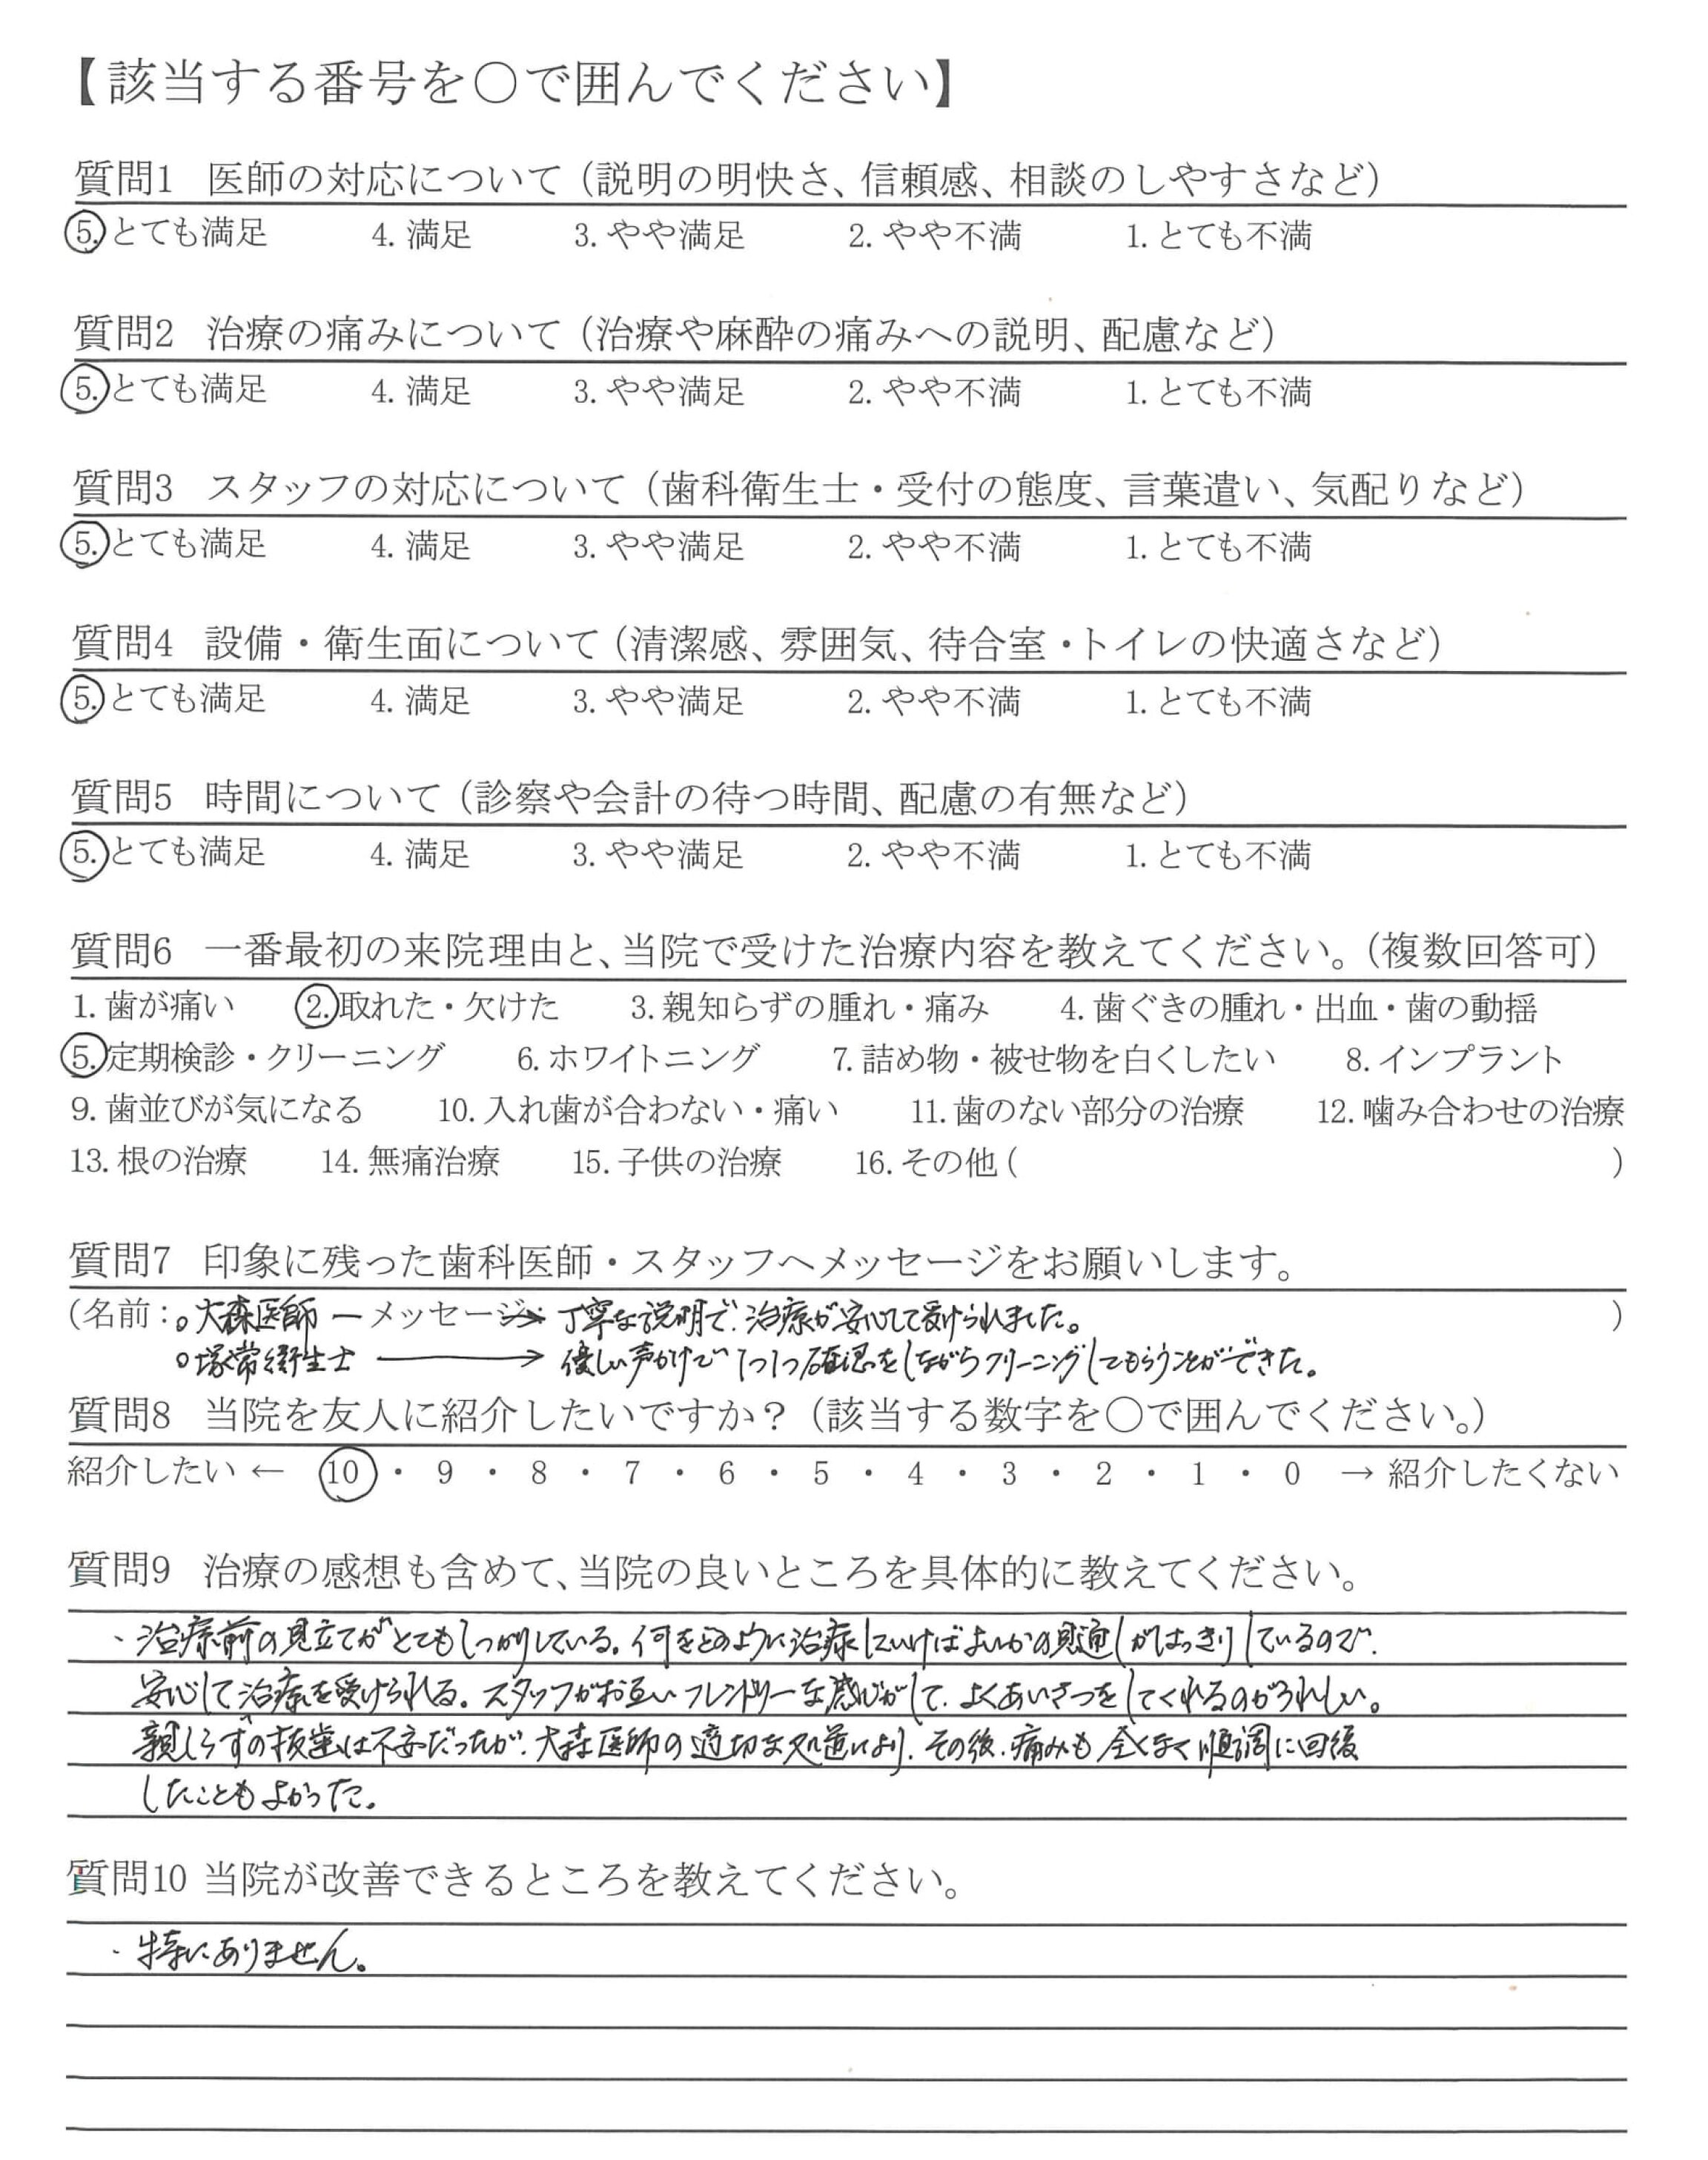 【該当する番号を○で囲んでください】
質問1 医師の対応について（説明の明快さ、信頼感、相談のしやすさなど）
5. とても満足 4. 満足 3. やや満足 2. やや不満 1. とても不満
質問2 治療の痛みについて（治療や麻酔の痛みへの説明、配慮など）
5. とても満足 4. 満足 3. やや満足 2. やや不満 1. とても不満
質問3 スタッフの対応について（歯科衛生士・受付の態度、言葉遣い、気配りなど）
5. とても満足 4. 満足 3. やや満足 2. やや不満 1. とても不満
質問4 設備・衛生面について（清潔感、雰囲気、待合室・トイレの快適さなど）
5. とても満足 4. 満足 3. やや満足 2. やや不満 1. とても不満
質問5 時間について（診察や会計の待つ時間、配慮の有無など）
5. とても満足 4. 満足 3. やや満足 2. やや不満 1. とても不満
質問6 一番最初の来院理由と、当院で受けた治療内容を教えてください。（複数回答可）
1. 歯が痛い 2. 取れた・欠けた 3. 親知らずの腫れ・痛み 4. 歯ぐきの腫れ・出血・歯の動揺
5. 定期検診・クリーニング 6. ホワイトニング 7. 詰め物・被せ物を白くしたい 8. インプラント
9. 歯並びが気になる 10. 入れ歯が合わない・痛い 11. 歯のない部分の治療 12. 噛み合わせの治療
13. 根の治療 14. 無痛治療 15. 子供の治療 16. その他（ ）
質問7 印象に残った歯科医師・スタッフへメッセージをお願いします。
（名前：。大森医師 ー メッセージ：→ 丁寧な説明で、治療が安心して受けられました。 ）
。塚常衛生士 → 優しい声かけで 1つ1つ確認をしながらクリーニングしてもらうことができた。
質問8 当院を友人に紹介したいですか？（該当する数字を○で囲んでください。）
紹介したい ← 10 ・ 9 ・ 8 ・ 7 ・ 6 ・ 5 ・ 4 ・ 3 ・ 2 ・ 1 ・ 0 → 紹介したくない
質問9 治療の感想も含めて、当院の良いところを具体的に教えてください。
・治療前の見立てがとてもしっかりしている。何をどのように治療していけばよいかの見通しがはっきりしているので、
安心して治療を受けられる。スタッフがお互いフレンドリーな感じがして、よくあいさつをしてくれるのがうれしい。
親しらずの抜歯は不安だったが、大森医師の適切な処置により、その後、痛みも全くなく順調に回復
したこともよかった。
質問10 当院が改善できるところを教えてください。
・特にありません。